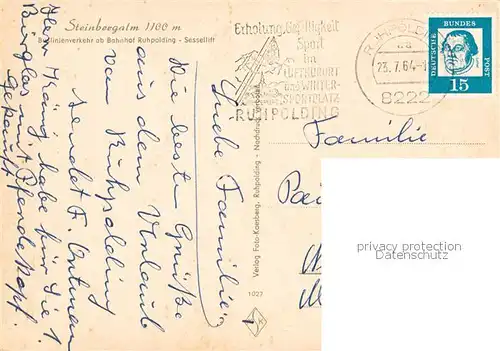 Steinbergalm 1100 m
Buslinienverkehr ab Bahnhof Ruhpolding - Sessellift
Liebe Familie!
Die besten Grüße
aus dem Urlaub
von Ruhpolding
sendet F.
Herr König habe für Sie 1
Bierglas mit Pferdekopf
gekauft
Verlag Foto-Koesberg, Ruhpolding - Nachdruck verboten
1027
Erholung, Geselligkeit
Sport
im
LUFTKURORT
UND WINTER-
SPORTPLATZ
RUHPOLDING
RUHPOLDING
23.7.64
8222
DEUTSCHE BUNDESPOST
15
Familie
privacy protection
Datenschutz